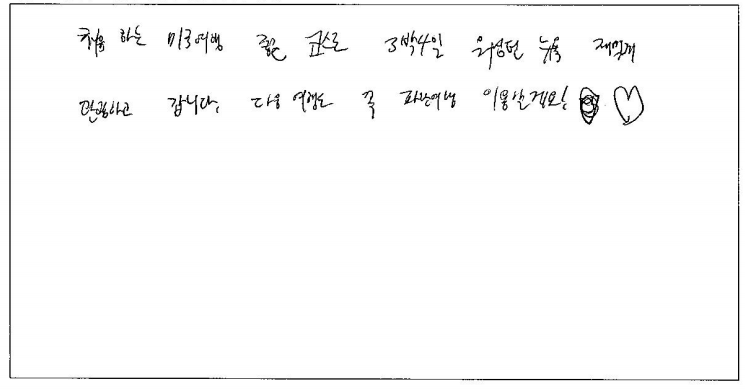 처음 하는 미국여행 좋은 코스로 3박4일 워싱턴 뉴욕 재밌게
관광하고 갑니다. 다음 여행도 꼭 파란여행 이용할게요! ♡